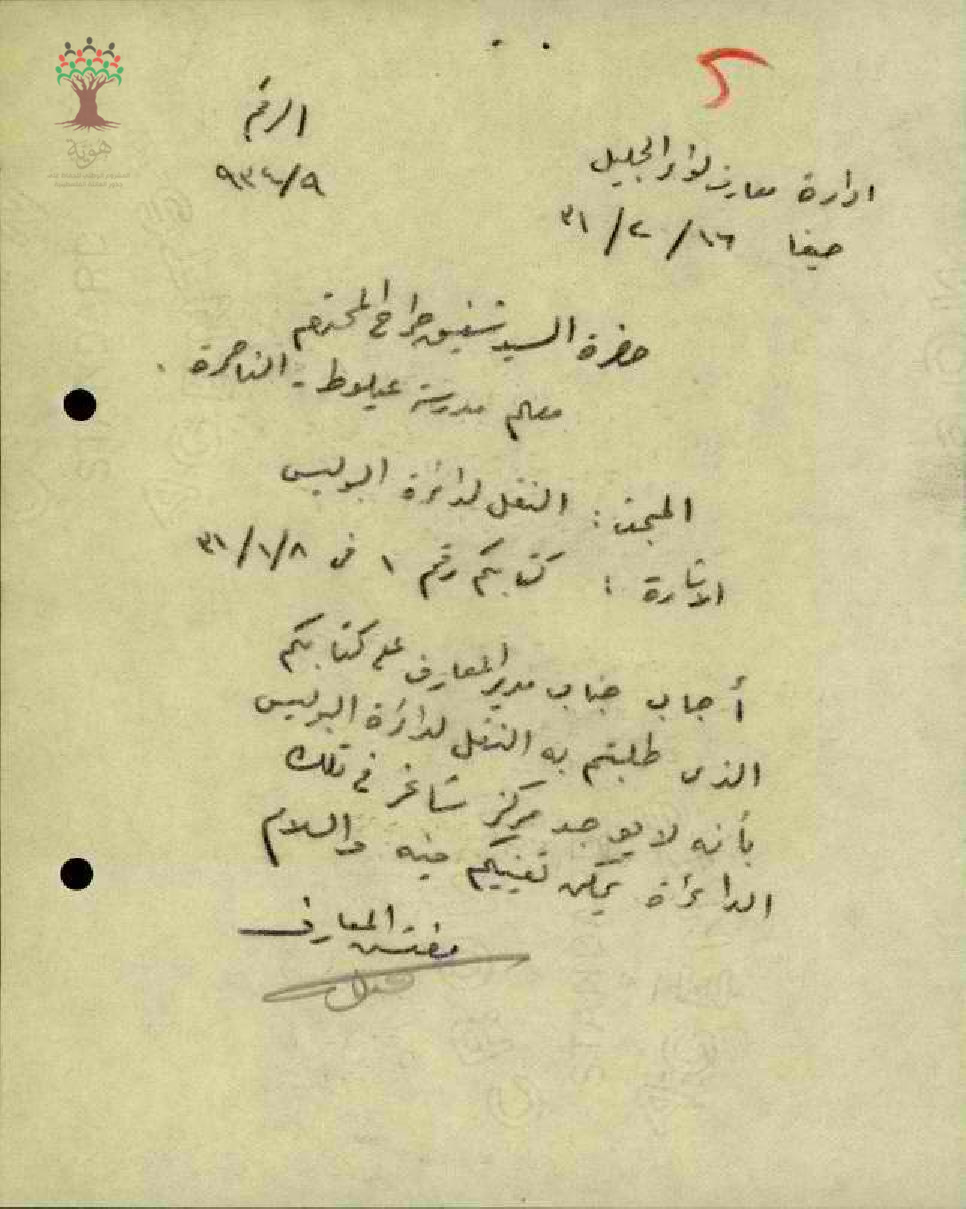 ٥
الرقم
٩٣٤/٩
ادارة معارف لواء الجليل
حيفا ١٦/٢/٣١
حضرة السيد شفيق جراح المحترم
معلم مدرسة عيلوط - الناصرة .
المبحث : النقل لدائرة البوليس
الاشارة : كتابكم رقم ١ في ٣١/١/٨
أجاب جناب مدير المعارف على كتابكم
الذي طلبتم به النقل لدائرة البوليس
بأنه لا يوجد مركز شاغر في تلك
الدائرة يمكن تعيينكم فيه والسلام
مفتش المعارف
هوية